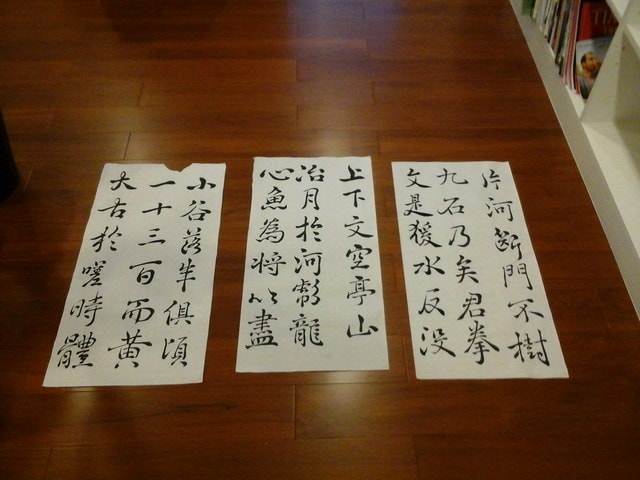 片河斷門不樹
九石乃矣君拳
文是猨水反没
上下文空亭山
治月於河勢龍
心魚為將以盡
小谷落牛俱頃
一十三百而黃
大古於嗟時體